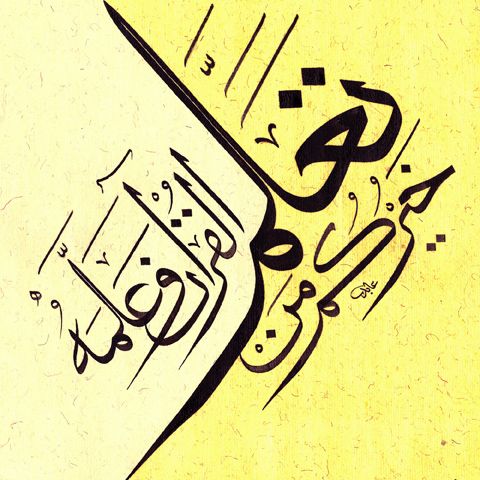 خيركم من
تعلم
القرآن وعلمه